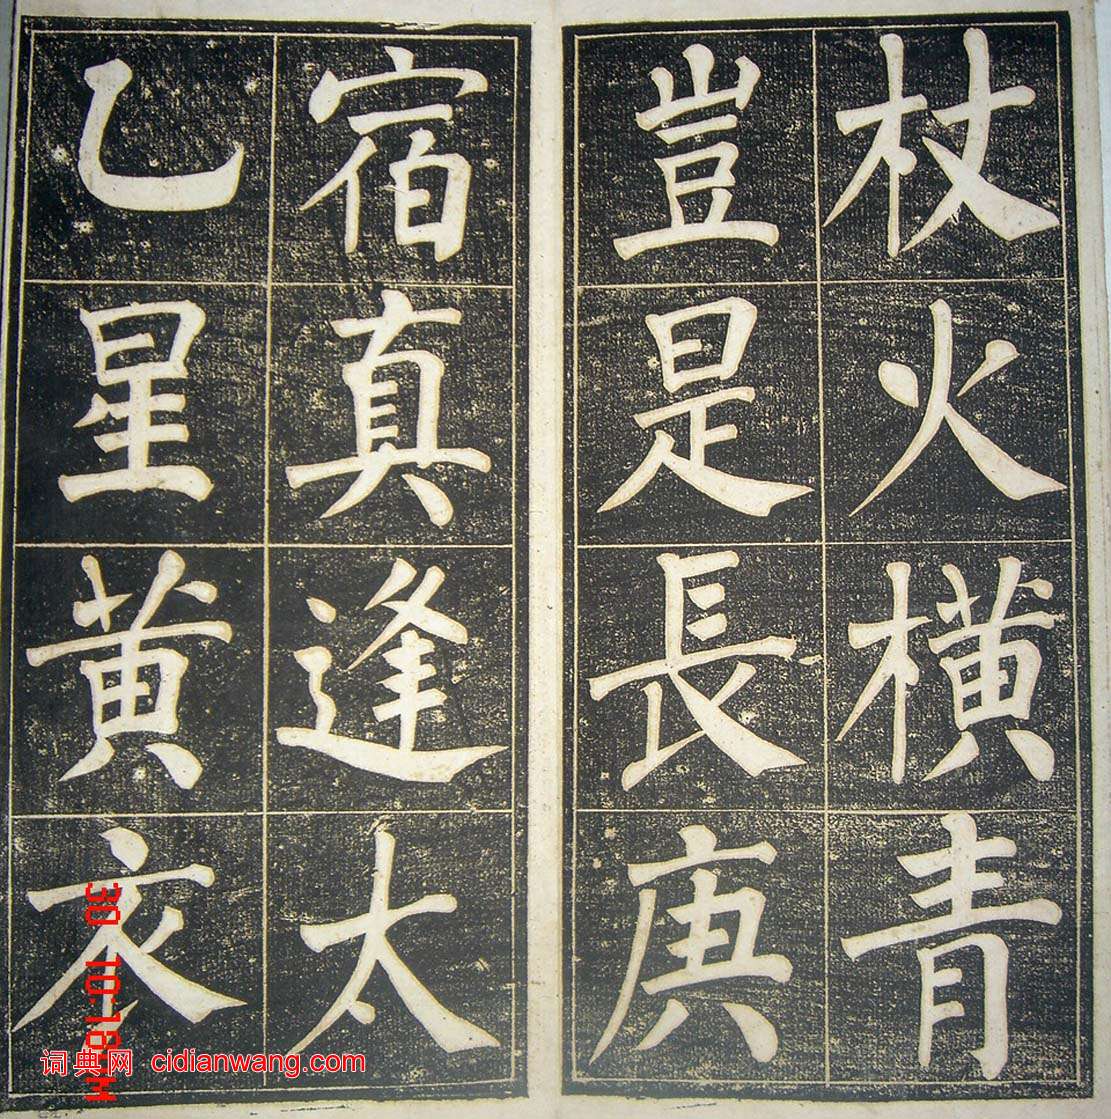 杖火横青
豈是長庚
宿真逢太
乙星黄衣
30 10:18
词典网 cidianwang.com